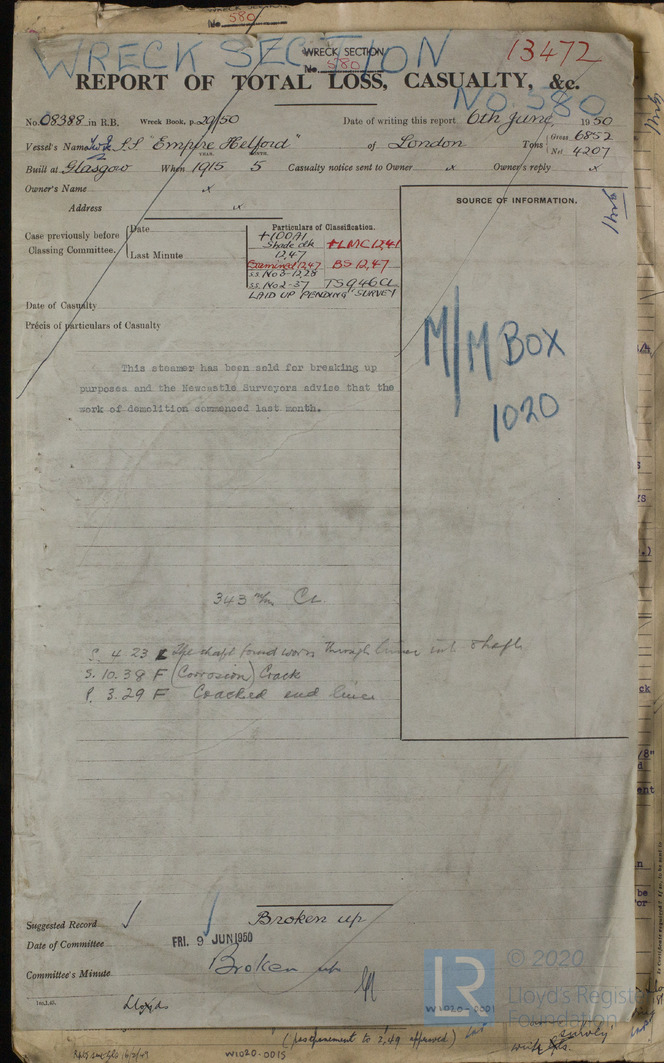 No. 580
WRECK SECTION
WRECK SECTION
No. 580
13472
REPORT OF TOTAL LOSS, CASUALTY, &c.
No. 580
No. 08388 in R.B. Wreck Book, p. 29/50 Date of writing this report 6th June 1950
Vessel's Name SS "Empire Helford" of London Tons Gross 6852
Net 4207
Built at Glasgow When YEAR 1915 MONTH 5 Casualty notice sent to Owner x Owner's reply x
Owner's Name x
Address x
SOURCE OF INFORMATION.
Case previously before Classing Committee. Date
Last Minute
Particulars of Classification.
+100A1
Shade dk +LMC 12,41
12,47
Examined 12,47 BS 12,47
SS. No 3-12,28
SS. No 2-37 TS 9,46 CL
LAID UP PENDING SURVEY
Date of Casualty
Précis of particulars of Casualty
M/M BOX
1020
This steamer has been sold for breaking up
purposes and the Newcastle Surveyors advise that the
work of demolition commenced last month.
343 m/m CL
S. 4.23 shaft found worn through liner into shaft
S. 10.38 F (Corrosion) Crack
P. 3.29 F Cracked end liner
Suggested Record Broken up
Date of Committee FRI. 9 JUN 1950
Committee's Minute Broken up
Lloyds
LR
© 2020
Lloyd's Register
Foundation
W1020-0001
(postponement to 2,49 approved)
W1020-0015